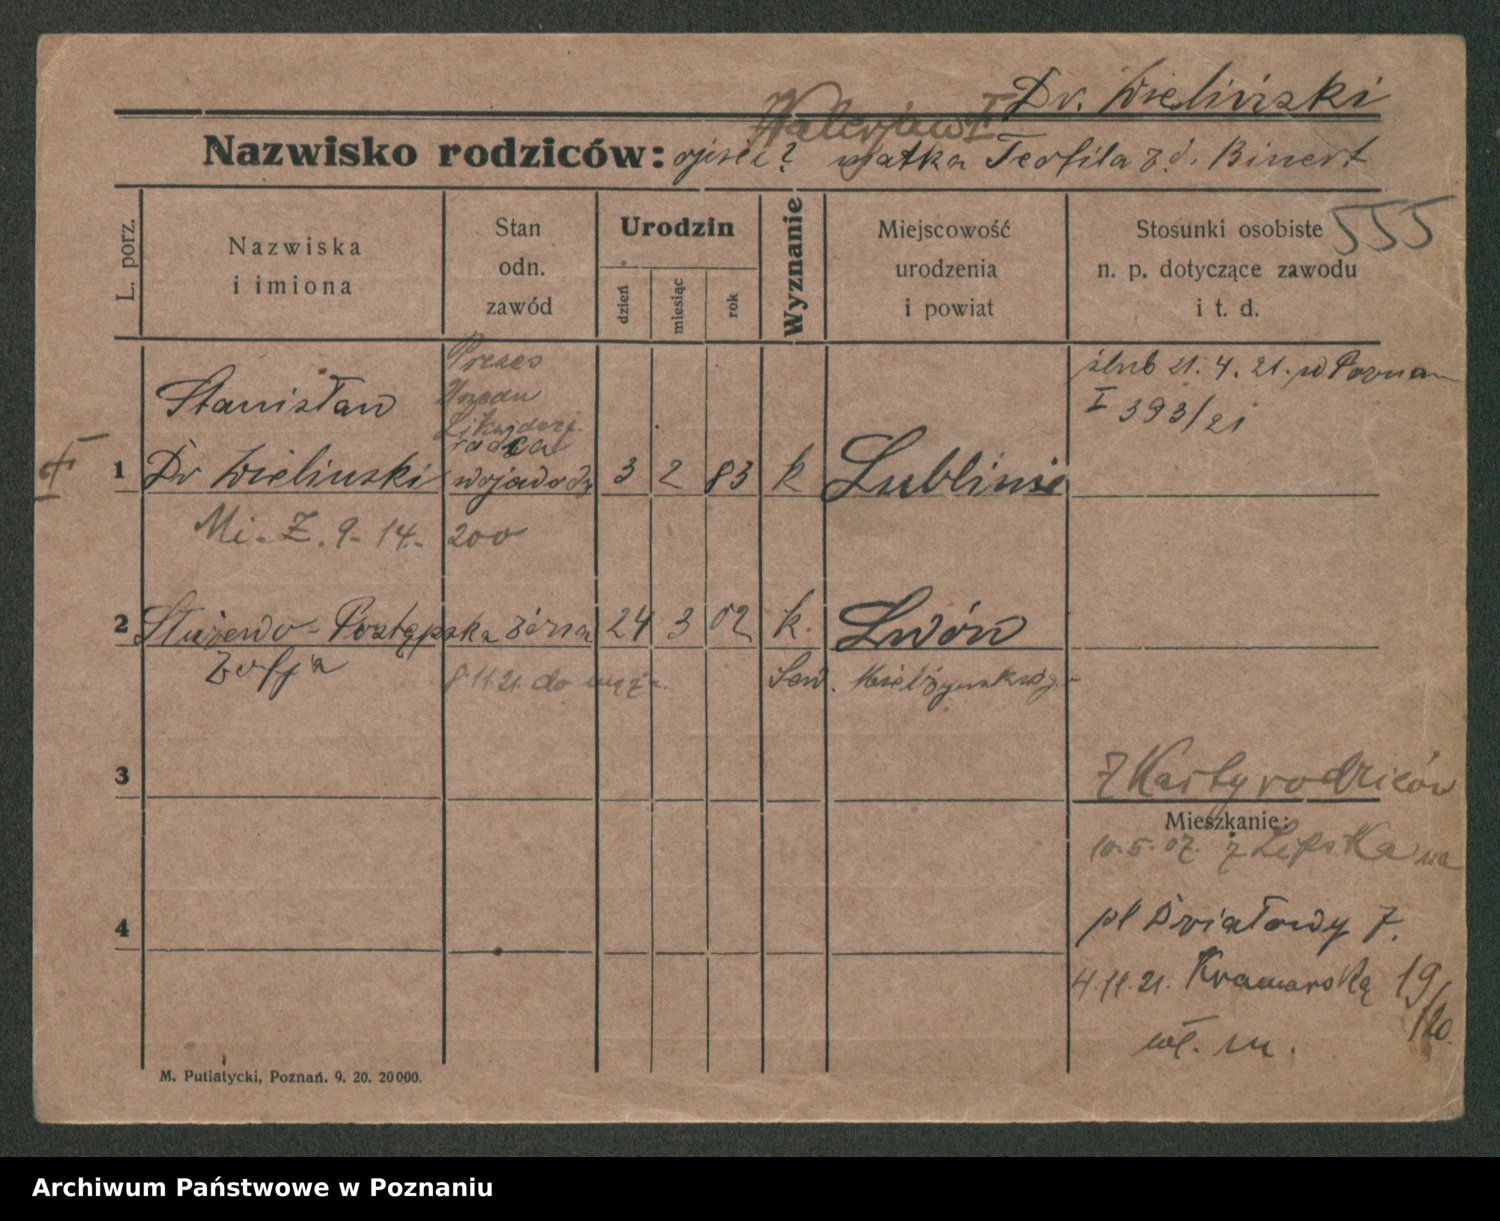 Dr. Wieliński
Walerjan
Nazwisko rodziców: ojciec? matka Teofila z d. Binert
555
L. porz.
Nazwiska
i imiona
Stan
odn.
zawód
Urodzin
dzień
miesiąc
rok
Wyznanie
Miejscowość
urodzenia
i powiat
Stosunki osobiste
n. p. dotyczące zawodu
i t. d.
Prezes
Urzędu
Likwidacyj.
radca
ślub 21. 4. 21. w Poznan
I 393/21
Stanisław
1 Dr Wielinski wojewodz 3 2 83 k Lublinie
Mi. Z. 9. 14. 200
2 Służewo-Postępska żona 24 3 02 k. Lwów
Zofja
8.11 21. do męża. Sew. Mielżyńskiego
3
Z Karty rodziców
Mieszkanie:
10.5.07. z Lipska na
4
pl Działowy 7.
4.11.21. Kramarską 19/20.
wł. m.
M. Putiatycki, Poznań. 9. 20. 20000.
Archiwum Państwowe w Poznaniu